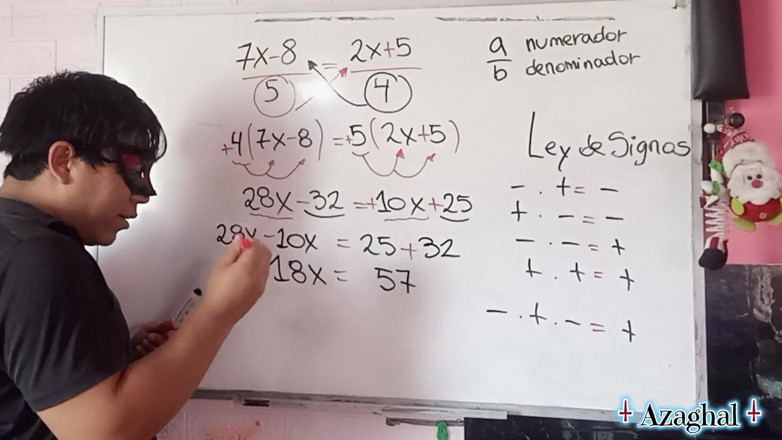 7x-8 = 2x+5
5 4
a numerador
b denominador
+4(7x-8) = +5(2x+5)
28x-32 = +10x+25
28x-10x = 25+32
18x = 57
Ley de Signos
- . + = -
+ . - = -
- . - = +
+ . + = +
- . + . - = +
Azaghal